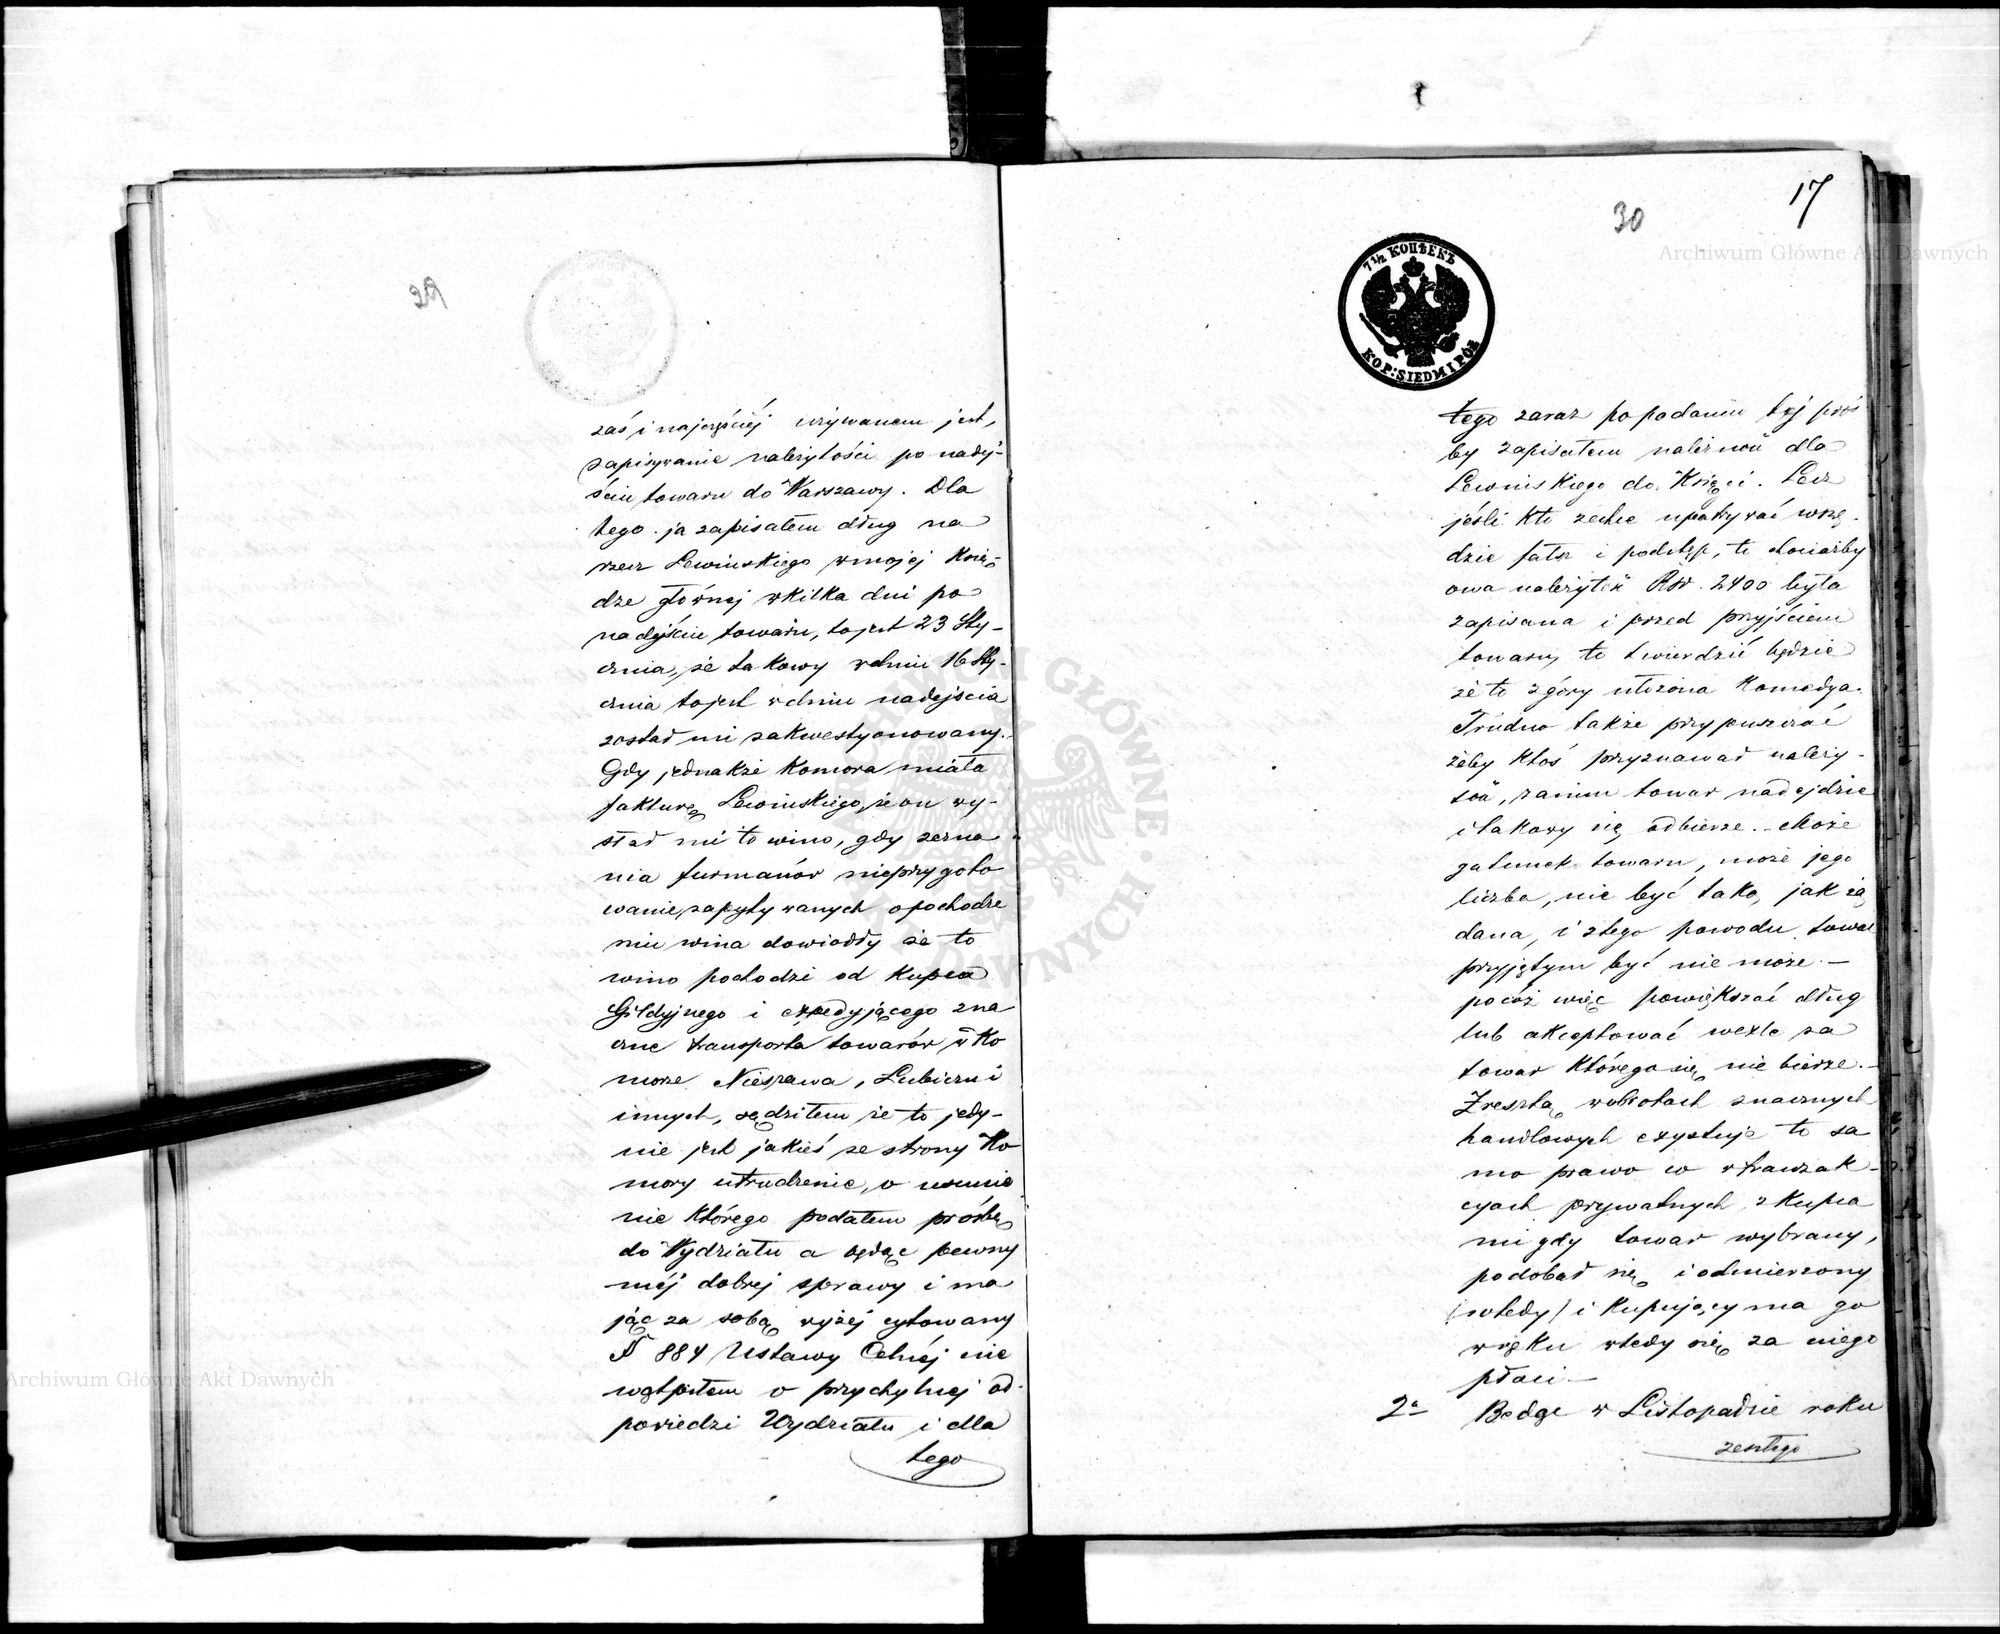 29
zaś i najczęściéj używanem jest,
zapisywanie należytości po nadéj-
ściu towaru do Warszawy. Dla
tego ja zapisałem dług na
rzecz Lewinskiego w mojej Księ-
dze głównej w kilka dni po
nadejściu towaru, to jest 23 Sty-
cznia, że takowy w dniu 16 Sty-
cznia to jest w dniu nadejścia
został mi zakwestyonowany.
Gdy jednakże Komora miała
fakturę Lewinskiego, że on wy-
słał mi to wino, gdy zezna
nia furmanów nieprzygoto
wanie zapytywanych o pochodze
niu wina dowiodły że to
wino pochodzi od Kupca
Gildyjnego i expedyjącego zna
czne transporta towarów w Ko
morze Nieszawa, Lubicz i
innych, sądziłem że to jedy-
nie jest jakieś ze strony Ko
mory utrudzenie, o usunie
nie którego podałem prośbę
do Wydziału a będąc pewny
méj dobrej sprawy i ma
jąc za sobą wyżej cytowany
§ 884 Ustawy Celnéj nie
wątpiłem o przychylnej od-
powiedzi Wydziału i dla
tego
17
30
7 1/2 КОПѢЕКЪ
KOP: SIEDM I PÓŁ
tego zaraz po podaniu téj proś
by zapisałem należność dla
Lewinskiego do Księgi. Lecz
jeśli kto zechce upatrywać wszę-
dzie fałsz i podstęp, to chociażby
owa należytość Rsr. 2400 była
zapisana i przed przyjściem
towaru, to twierdzić będzie
że to z góry ułożona Komedya.
Trudno także przypuszczać
żeby ktoś przyznawał należy-
tość, zanim towar nadejdzie
i takowy się odbierze. Może
gatunek towaru, może jego
liczba, nie być taką, jak żą
dana, i z tego powodu towar
przyjętym być nie może.—
pocóż więc powiększać dług
lub akceptować wexle za
towar którego się nie bierze.—
Zresztą w obrotach znacznych
handlowych exystuje to sa
mo prawo co w tranzak-
cyach prywatnych z Kupca
mi gdy towar wybrany,
podobał się i odmierzony
(wtedy) i kupujący ma go
w ręku wtedy się za niego
płaci.—
2° Będąc w Listopadzie roku
zeszłego
Archiwum Główne Akt Dawnych
Archiwum Główne Akt Dawnych